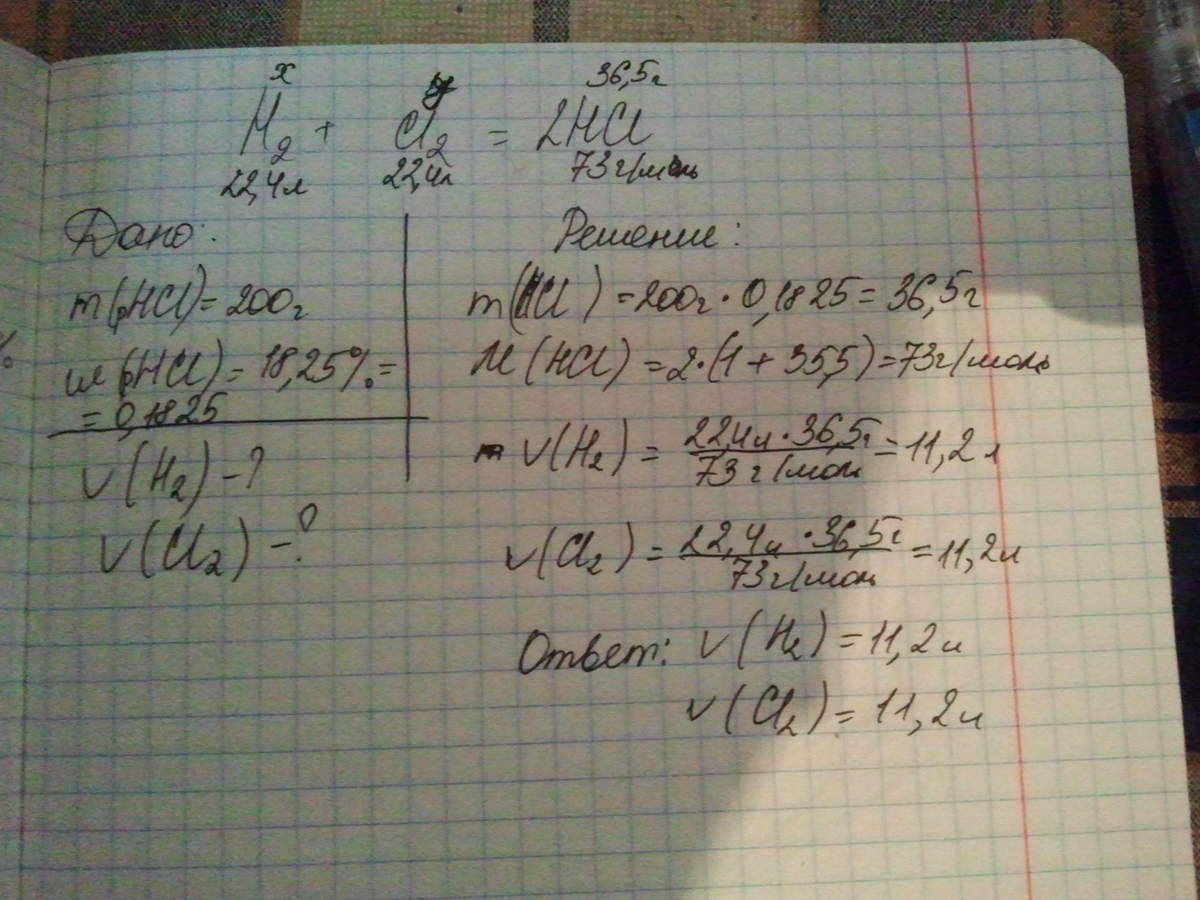 x y 36,5г
H₂ + Cl₂ = 2HCl
22,4л 22,4л 73г/моль
Дано:
m(рHCl)=200г
w(рHCl)=18,25%=
=0,1825
V(H₂)-?
V(Cl₂)-?
Решение:
m(HCl)=200г·0,1825=36,5г
M(HCl)=2·(1+35,5)=73г/моль
V(H₂)=22,4л·36,5г/73г/моль=11,2л
V(Cl₂)=22,4л·36,5г/73г/моль=11,2л
Ответ: V(H₂)=11,2л
V(Cl₂)=11,2л
%